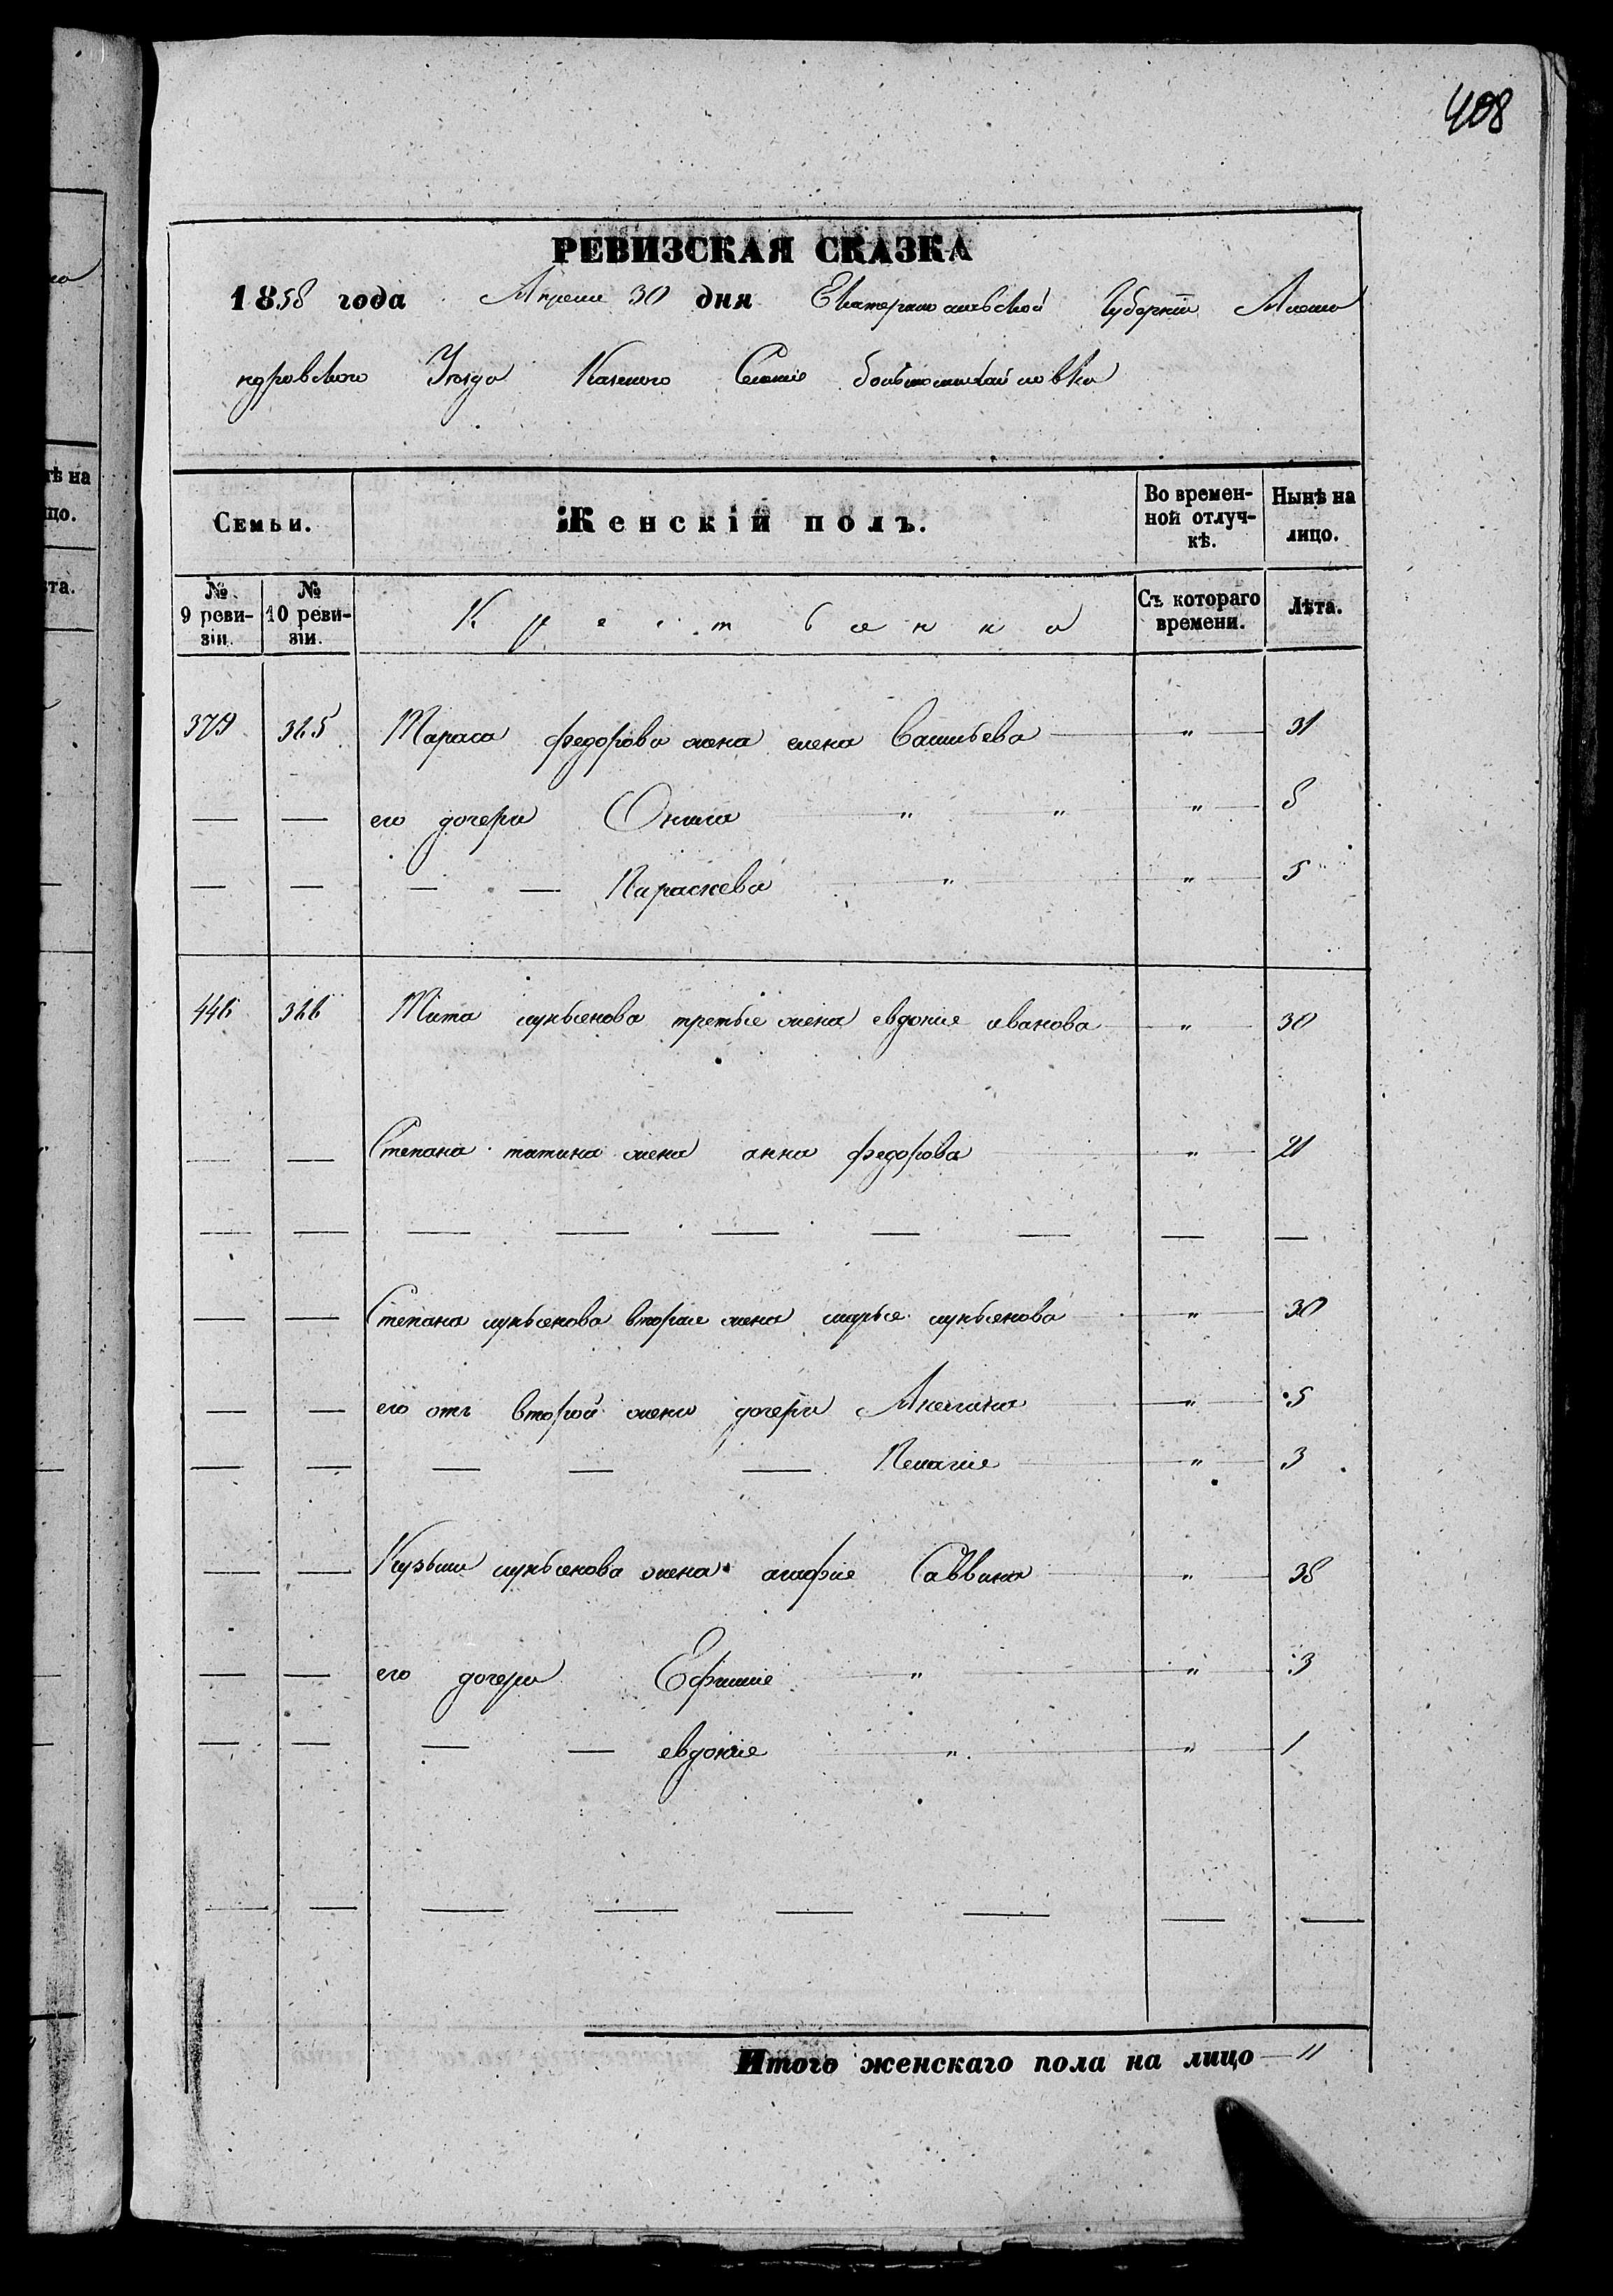 408
РЕВИЗСКАЯ СКАЗКА
1858 года Апреля 30 дня Екатеринославской Губернии Алекса
ндровского Уезда Казенного Селения большемихайловка
Семьи. Женскій полъ. Во времен-ной отлуч-кѣ. Нынѣ на лицо.
№ 9 реви-зіи. № 10 реви-зіи. Крестьянка Съ котораго времени. Лѣта.
379 325 Тараса федорова жена елена Васильева " 31
— — его дочери " " " 8
— — — — Параскева " " 5
446 326 Тита лукьянова третья жена евдокия иванова " 30
— — Степана титина жена анна федорова " 21
— — — — — — — — —
— — Степана лукьянова вторая жена марья лукьянова " 30
— — его отъ второй жены дочери Акилина " 5
— — — — — Пелагия " 3
— — Кузьмы лукьянова жена агафия Саввина " 38
— — его дочери Ефимия " " 3
— — — — евдокия " " 1
— — — — — — — —
Итого женскаго пола на лицо — 11
ѣ на
цо.
ѣта.